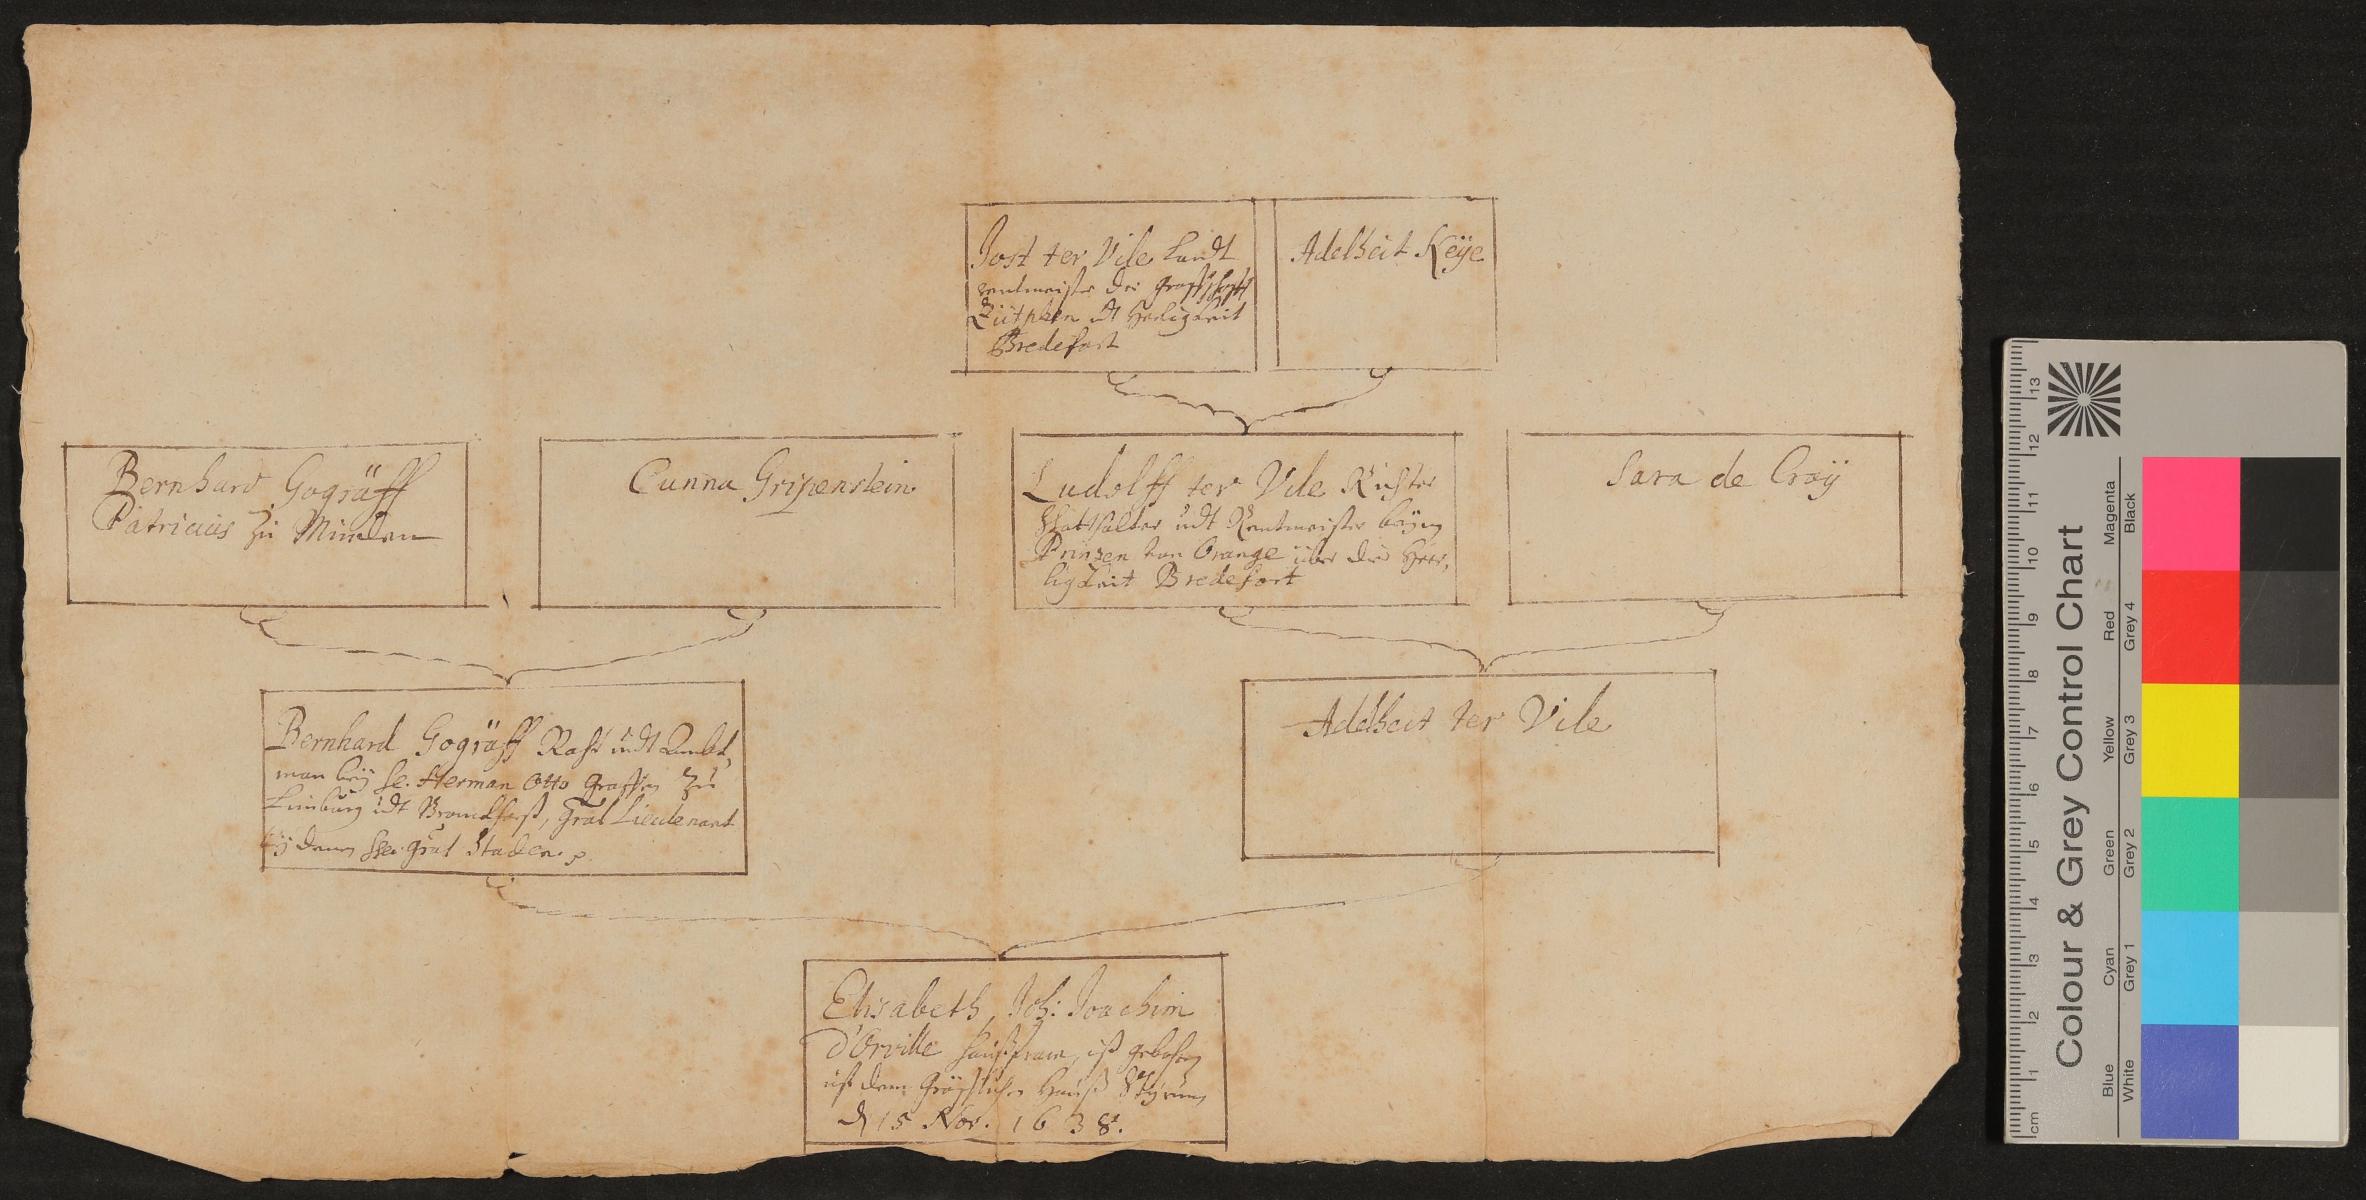 Jost ter Vile Landt
rentmeister der Graffschafft
Zütphen udt Herligkeit
Bredefort
Adelheit Keÿe
Bernhard Gogräff
Patricius zu Minden
Cunna Gripenstein
Ludolff ter Vile Richter
Statthalter udt Rentmeister beÿm
Prinzen von Orange über die Herr,
ligkeit Bredefort
Sara de Croÿ
Bernhard Gogräff Raht undt Ambt,
man beÿ Herman Otto Graffen zu
Limburg udt Bronckhorst, Gral Lieutenant
beÿ denen Gral Staden
Adelheit ter Vile
Elisabeth, Joh: Joachim
d'Orville haußfraw, ist gebohren
uf dem Gräfflichen Hauß Styrum
d 15 Nov. 1638.
Colour & Grey Control Chart
Blue Cyan Green Yellow Red Magenta
White Grey 1 Grey 2 Grey 3 Grey 4 Black
cm 1 2 3 4 5 6 7 8 9 10 11 12 13